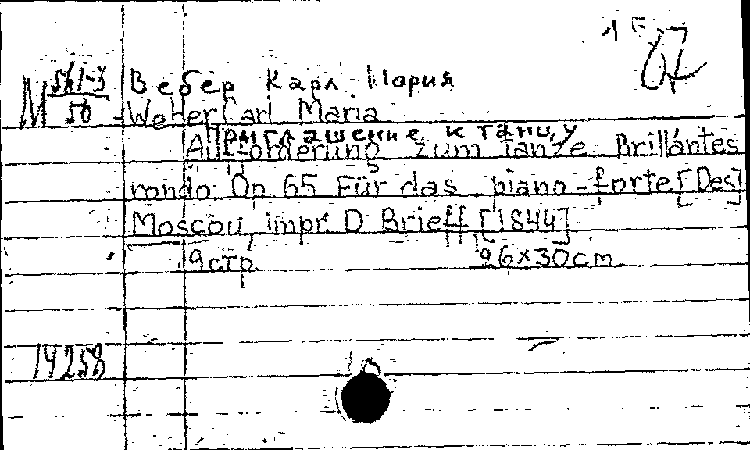 67
М 561-3/56 Вебер Карл Мария
Weber Carl Maria
Приглашение к танцу
Aufforderung zum Tanze Brillantes
rondo Op 65 Für das piano-forte [Des]
Moscou, impr D Brieff [1844]
9 стр 26x30cm
14258